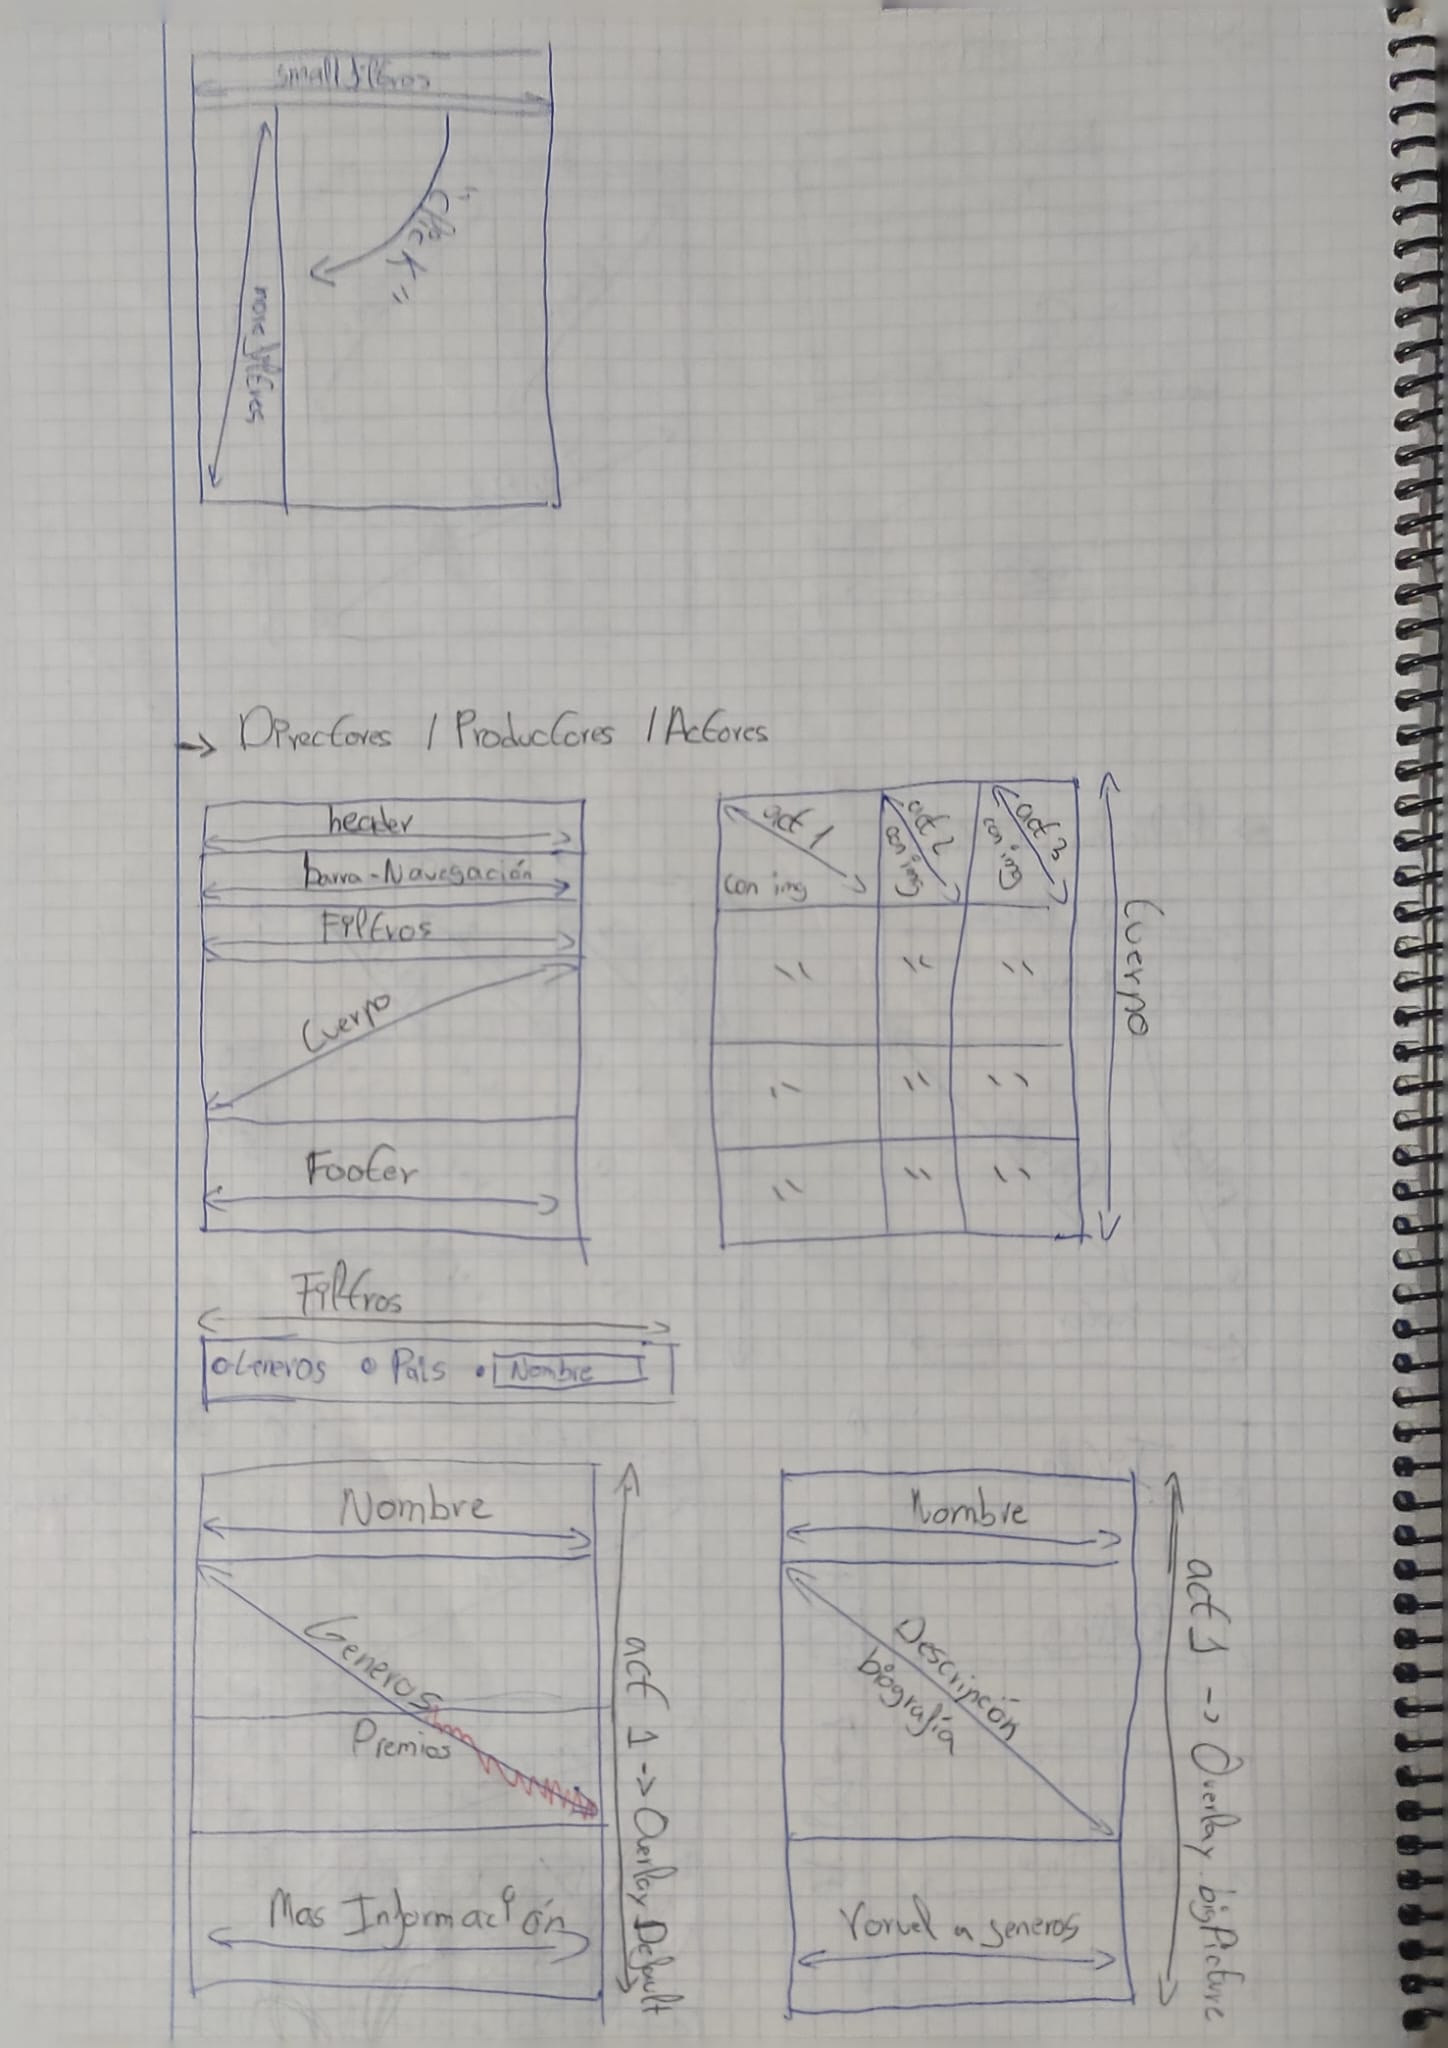 small filtros
click
more filtros
→ Directores / Productores / Actores
header
barra-Navegación
Filtros
Cuerpo
Footer
act 1
con img
act 2
con img
act 3
con img
" " "
" " "
" " "
Cuerpo
Filtros
Generos Pais Nombre
Nombre
Generos
Premios
Mas Información
act 1 -> Overlay Default
Nombre
Descripción
biografía
a generos
act 1 -> Overlay bigPicture